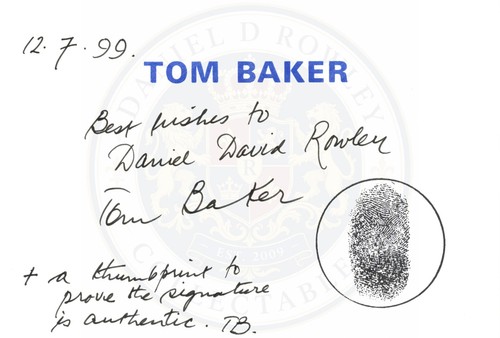 12.7.99.
TOM BAKER
Best wishes to
Daniel David Rowley
Tom Baker
+ a thumbprint to
prove the signature
is authentic. TB.
DANIEL D ROWLEY
EST. 2009
COLLECTABLES